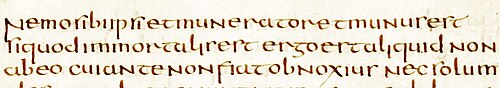 nemosibiipsietmuneratoretmunusest
siquodimmortalisest ergoestaliquid non
abeo cuiantenonfiatobnoxius nec solum